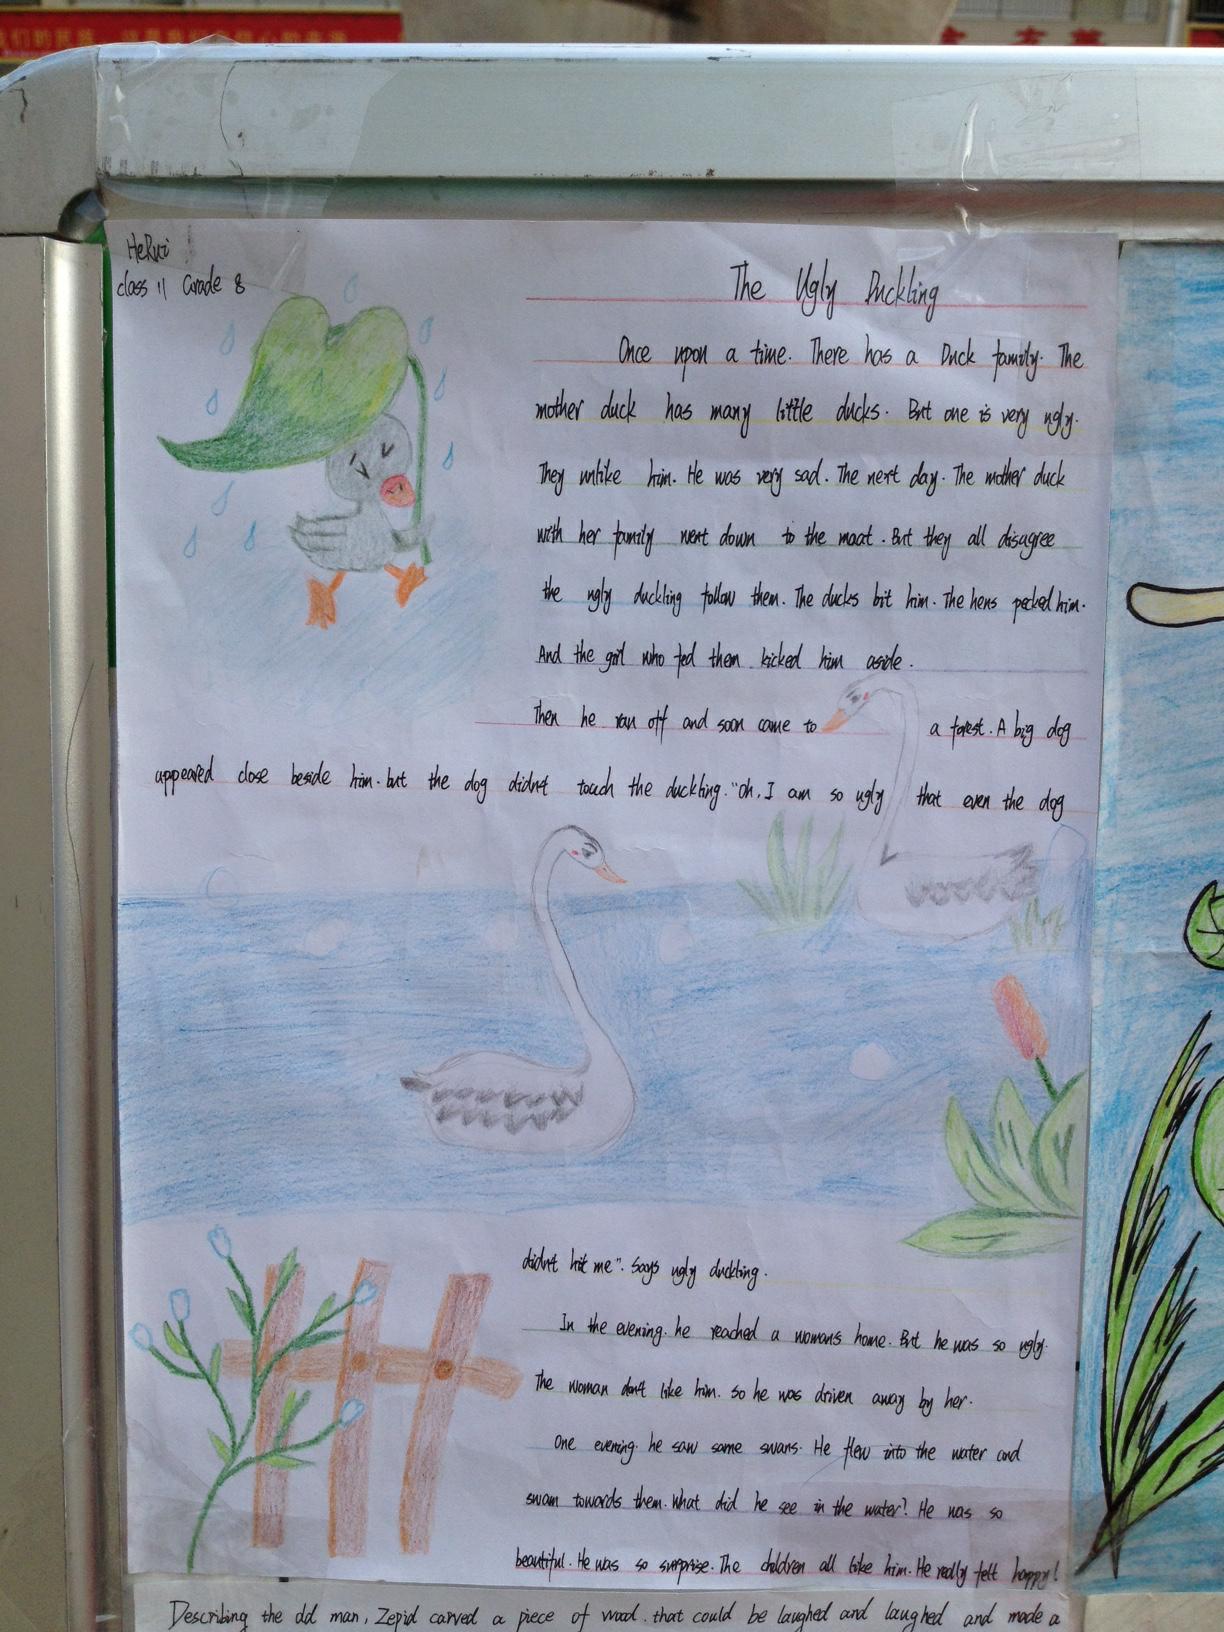 HeRui
class 11 Grade 8
The Ugly Duckling
Once upon a time. There has a Duck family. The
mother duck has many little ducks. But one is very ugly.
They unlike him. He was very sad. The next day. The mother duck
with her family went down to the moat. But they all disagree
the ugly duckling follow them. The ducks bit him. The hens pecked him.
And the girl who fed them kicked him aside.
Then he ran off and soon came to a forest. A big dog
appeared close beside him. but the dog didn't touch the duckling. "Oh, I am so ugly that even the dog
didn't hit me". Says ugly duckling.
In the evening. he reached a womans home. But he was so ugly.
The woman don't like him. So he was driven away by her.
One evening. he saw some swans. He flew into the water and
swam towards them. What did he see in the water? He was so
beautiful. He was so surprise. The children all like him. He really felt happy!
Describing the old man, Zepid carved a piece of wood. that could be laughed and laughed and made a